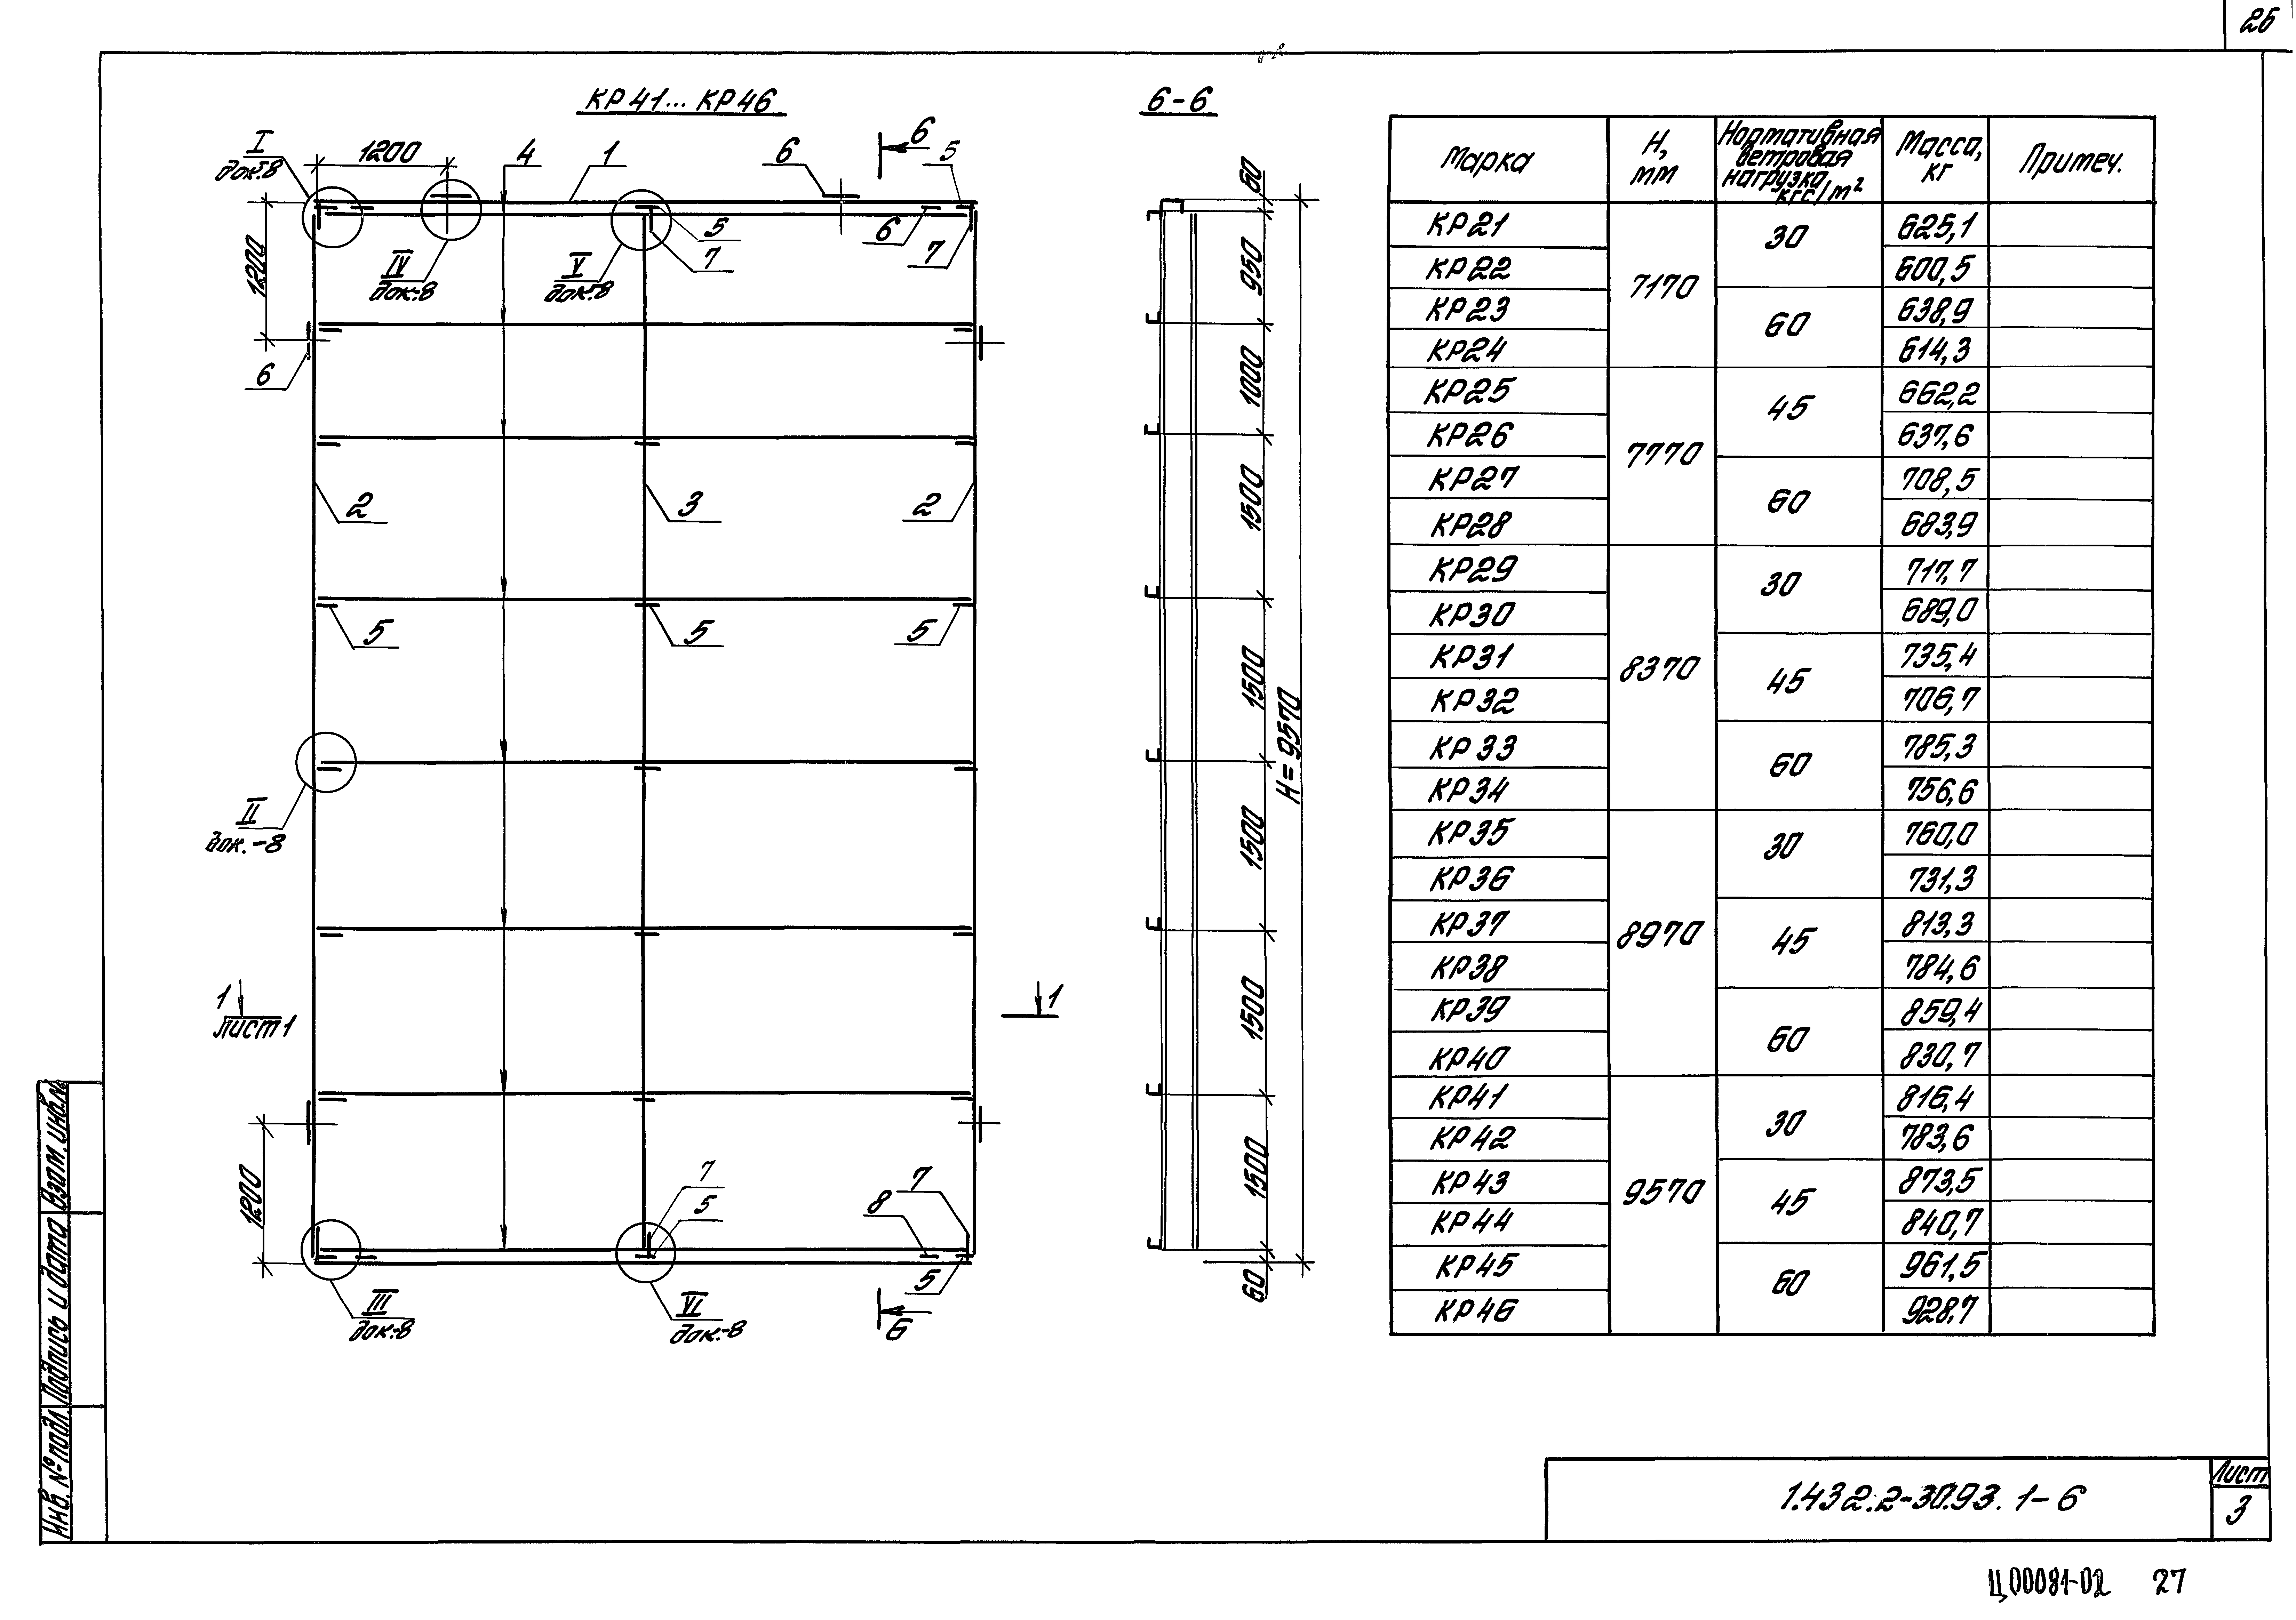 26
КР41... КР46
6-6
I
док.-8
1200
4
1
6
6
5
1200
IV
док.-8
V
док.-8
5
7
6
7
6
2
3
2
5
5
5
II
док.-8
1
лист 1
1
1200
7
5
8
7
5
III
док.-8
VI
док.-8
6
60
950
1000
1500
1500
1500
1500
1500
60
H=9570
Марка
H, мм
Нормативная ветровая нагрузка кгс/м²
Масса, кг
Примеч.
КР21 7170 30 625,1
КР22 600,5
КР23 60 638,9
КР24 614,3
КР25 7770 45 662,2
КР26 637,6
КР27 60 708,5
КР28 683,9
КР29 8370 30 717,7
КР30 689,0
КР31 45 735,4
КР32 706,7
КР33 60 785,3
КР34 756,6
КР35 8970 30 760,0
КР36 731,3
КР37 45 813,3
КР38 784,6
КР39 60 859,4
КР40 830,7
КР41 9570 30 816,4
КР42 783,6
КР43 45 873,5
КР44 840,7
КР45 60 961,5
КР46 928,7
Инв. № подл. Подпись и дата Взам. инв. №
1.432.2-30.93. 1-6
Лист
3
Ц00081-02 27